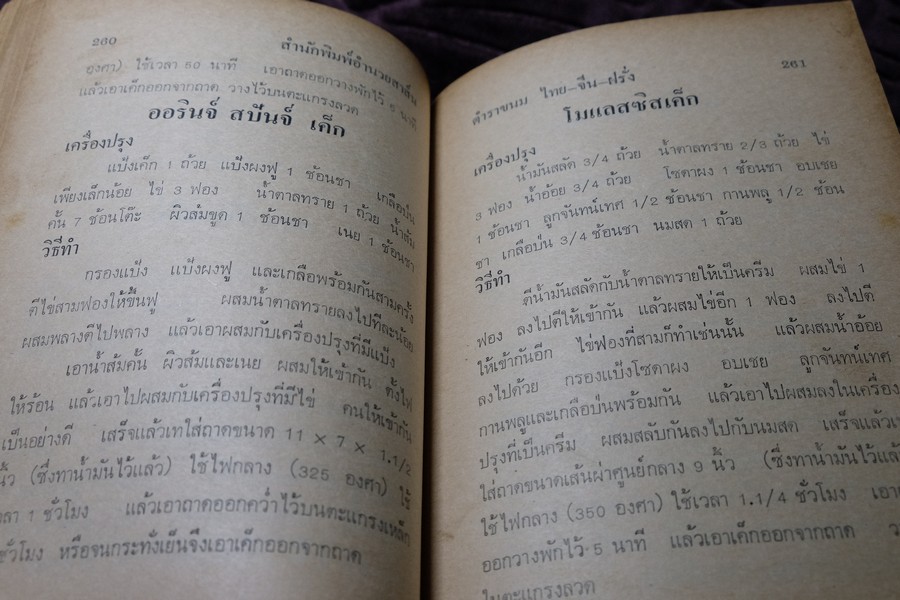 260
สำนักพิมพ์อำนวยสาส์น
องศา) ใช้เวลา 50 นาที เอาถาดออกวางพักไว้ 5 นาที
แล้วเอาเค็กออกจากถาด วางไว้บนตะแกรงลวด
ออรินจ์ สปันจ์ เค็ก
เครื่องปรุง
แป้งเค็ก 1 ถ้วย แป้งผงฟู 1 ช้อนชา เกลือป่น
เพียงเล็กน้อย ไข่ 3 ฟอง น้ำตาลทราย 1 ถ้วย น้ำส้ม
คั้น 7 ช้อนโต๊ะ ผิวส้มขูด 1 ช้อนชา เนย 1 ช้อนชา
วิธีทำ
กรองแป้ง แป้งผงฟู และเกลือพร้อมกันสามครั้ง
ตีไข่สามฟองให้ขึ้นฟู ผสมน้ำตาลทรายลงไปทีละน้อย
ผสมพลางตีไปพลาง แล้วเอาผสมกับเครื่องปรุงที่มีแป้ง
เอาน้ำส้มคั้น ผิวส้มและเนย ผสมให้เข้ากัน ตั้งไฟ
ให้ร้อน แล้วเอาไปผสมกับเครื่องปรุงที่มีไข่ คนให้เข้ากัน
เป็นอย่างดี เสร็จแล้วเทใส่ถาดขนาด 11 × 7 × 1.1/2
นิ้ว (ซึ่งทาน้ำมันไว้แล้ว) ใช้ไฟกลาง (325 องศา) ใช้
ลา 1 ชั่วโมง แล้วเอาถาดออกคว่ำไว้บนตะแกรงเหล็ก
ชั่วโมง หรือจนกระทั่งเย็นจึงเอาเค็กออกจากถาด
ตำราขนม ไทย-จีน-ฝรั่ง
261
โมแลสซิสเค็ก
เครื่องปรุง
น้ำมันสลัด 3/4 ถ้วย น้ำตาลทราย 2/3 ถ้วย ไข่
3 ฟอง น้ำอ้อย 3/4 ถ้วย โซดาผง 1 ช้อนชา อบเชย
1 ช้อนชา ลูกจันทน์เทศ 1/2 ช้อนชา กานพลู 1/2 ช้อน
ชา เกลือป่น 3/4 ช้อนชา นมสด 1 ถ้วย
วิธีทำ
ตีน้ำมันสลัดกับน้ำตาลทรายให้เป็นครีม ผสมไข่ 1
ฟอง ลงไปตีให้เข้ากัน แล้วผสมไข่อีก 1 ฟอง ลงไปตี
ให้เข้ากันอีก ไข่ฟองที่สามก็ทำเช่นนั้น แล้วผสมน้ำอ้อย
ลงไปด้วย กรองแป้งโซดาผง อบเชย ลูกจันทน์เทศ
กานพลูและเกลือป่นพร้อมกัน แล้วเอาไปผสมลงในเครื่อง
ปรุงที่เป็นครีม ผสมสลับกันลงไปกับนมสด เสร็จแล้วเท
ใส่ถาดขนาดเส้นผ่าศูนย์กลาง 9 นิ้ว (ซึ่งทาน้ำมันไว้แล้ว
ใช้ไฟกลาง (350 องศา) ใช้เวลา 1.1/4 ชั่วโมง
ออกวางพักไว้ 5 นาที แล้วเอาเค็กออกจากถาด
ในตะแกรงลวด